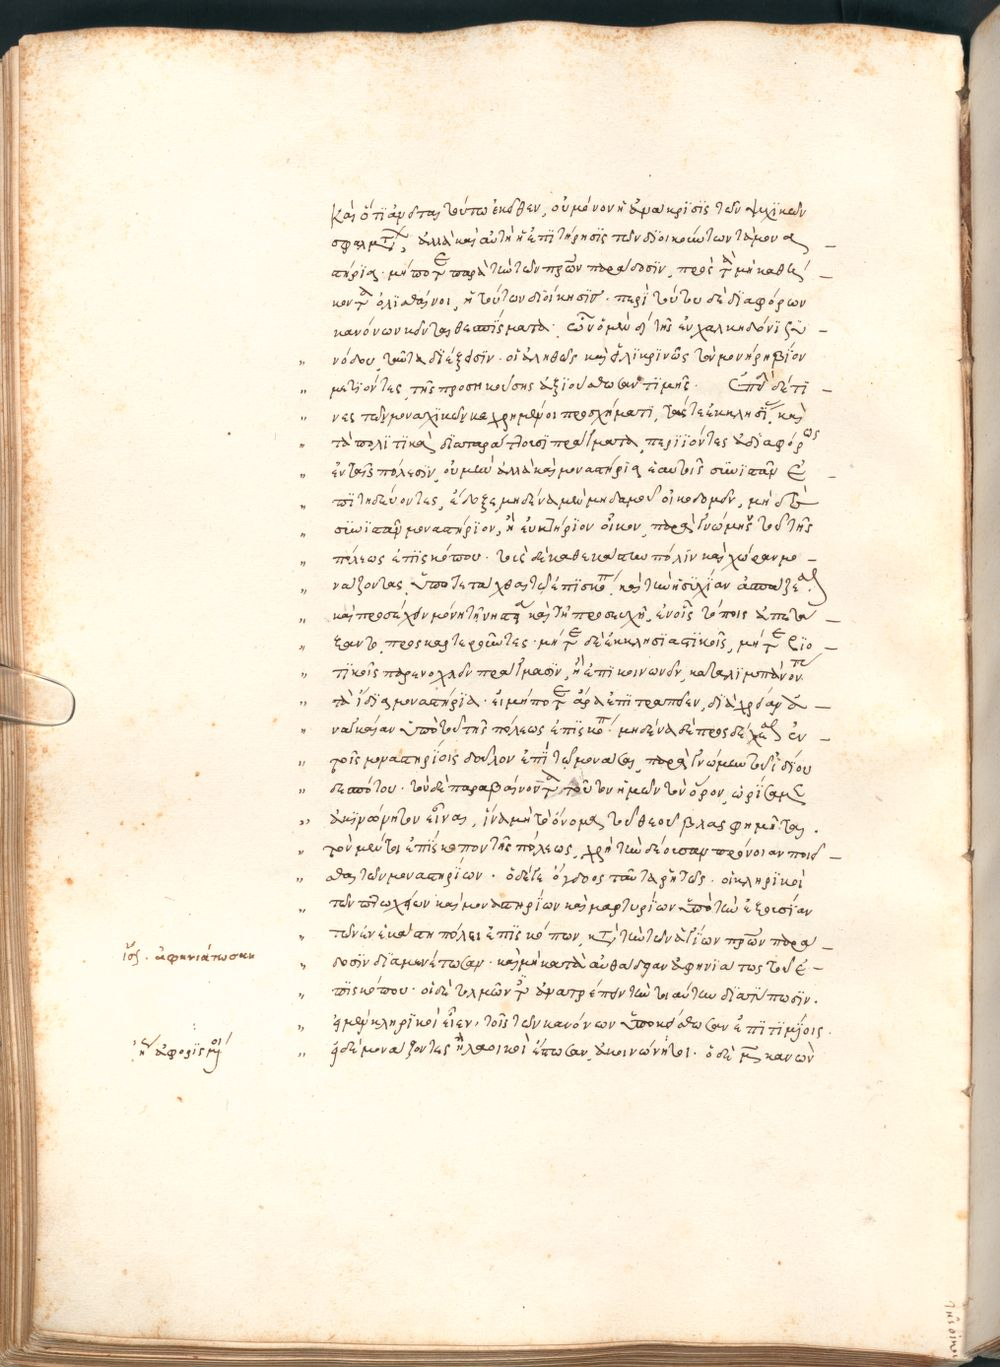 καὶ ὅτι ἀρεστὰς τούτω ἐκεῖθεν, οὐ μόνον ἡ ἀνάκρισις τῶν ψυχικῶν
σφαλμάτων, ἀλλὰ καὶ αὐτὴ ἡ ἐπιτήρησις τῶν διοικούντων τὰ μονα
στήρια· μήποτε παρὰ τὴν τῶν πρων παράδοσιν, πρὸς τὰ μὴ καθή
κοντα ὀλισθαίνοι, ἡ τούτων διοίκησις· περὶ τούτου δὲ διαφόρων
κανόνων κεῖνται θεσπίσματα· ὧν ὁ μὲν δ' τῆς ἐν χαλκηδόνι συ
νόδου, ταῦτα διέξεισιν· οἱ ἀληθῶς καὶ εἰλικρινῶς τὸν μονήρη βίον
μετιόντες, τῆς προσηκούσης ἀξιούσθωσαν τιμῆς· ἐπεὶ δέ τι
νες τῶν μοναχικῶν κεχρημένοι προσχήματι, τάς τε ἐκκλησίας καὶ
τὰ πολιτικὰ διαταράττουσι πράγματα, περιϊόντες ἀδιαφόρως
ἐν ταῖς πόλεσιν, οὐ μὴν ἀλλὰ καὶ μοναστήρια ἑαυτοῖς συνιστᾶν ἐ
πιτηδεύοντες, ἔδοξε μηδένα μὲν μηδαμοῦ οἰκοδομεῖν, μηδὲ
συνιστᾶν μοναστήριον, ἢ εὐκτήριον οἶκον, παρὰ γνώμης τοῦ τῆς
πόλεως ἐπισκόπου· τοὺς δὲ καθ' ἑκάστην πόλιν καὶ χώραν μο
νάζοντας, ὑποτετάχθαι τῷ ἐπισκόπῳ, καὶ τὴν ἡσυχίαν ἀσπάζεσθαι
καὶ προσέχειν μόνῃ τῇ νηστείᾳ καὶ τῇ προσευχῇ, ἐν οἷς τόποις ἀπετά
ξαντο, προσκαρτεροῦντες· μήτε δὲ ἐκκλησιαστικοῖς, μήτε βιω
τικοῖς παρενοχλεῖν πράγμασιν, ἢ ἐπικοινωνεῖν, καταλιμπάνοντας
τὰ ἴδια μοναστήρια· εἰ μήποτε ἄρα ἐπιτραπεῖεν, διὰ χρείαν ἀ
ναγκαίαν ὑπὸ τοῦ τῆς πόλεως ἐπισκόπου· μηδένα δὲ προσδέχεσθαι ἐν
τοῖς μοναστηρίοις δοῦλον ἐπὶ τῷ μονάσαι, παρὰ γνώμην τοῦ ἰδίου
δεσπότου· τὸν δὲ παραβαίνοντα τοῦτον ἡμῶν τὸν ὅρον, ὡρίσαμεν
ἀκοινώνητον εἶναι, ἵνα μὴ τὸ ὄνομα τοῦ θεοῦ βλασφημῆται.
τὸν μέντοι ἐπίσκοπον τῆς πόλεως, χρὴ τὴν δέουσαν πρόνοιαν ποιεῖ
σθαι τῶν μοναστηρίων· ὁ δέ γε ὄγδοος ταῦτα ῥητῶς· οἱ κληρικοὶ
τῶν πτωχείων καὶ μοναστηρίων καὶ μαρτυρίων ὑπὸ τὴν ἐξουσίαν
τῶν ἐν ἑκάστῃ πόλει ἐπισκόπων, κατὰ τὴν τῶν ἁγίων πρων παρά
δοσιν διαμενέτωσαν· καὶ μὴ κατὰ αὐθάδειαν ἀφηνιάτως τοῦ ἐ
πισκόπου· οἱ δὲ τολμῶντες ἀνατρέπειν τὴν τοιαύτην διατύπωσιν.
εἰ μὲν κληρικοὶ εἶεν, τοῖς τῶν κανόνων ὑποκείσθωσαν ἐπιτιμίοις.
εἰ δὲ μονάζοντες ἢ λαϊκοὶ ἔστωσαν ἀκοινώνητοι· ὁ δὲ κανὼν
ἴσως· ἀφηνιάτωσαν